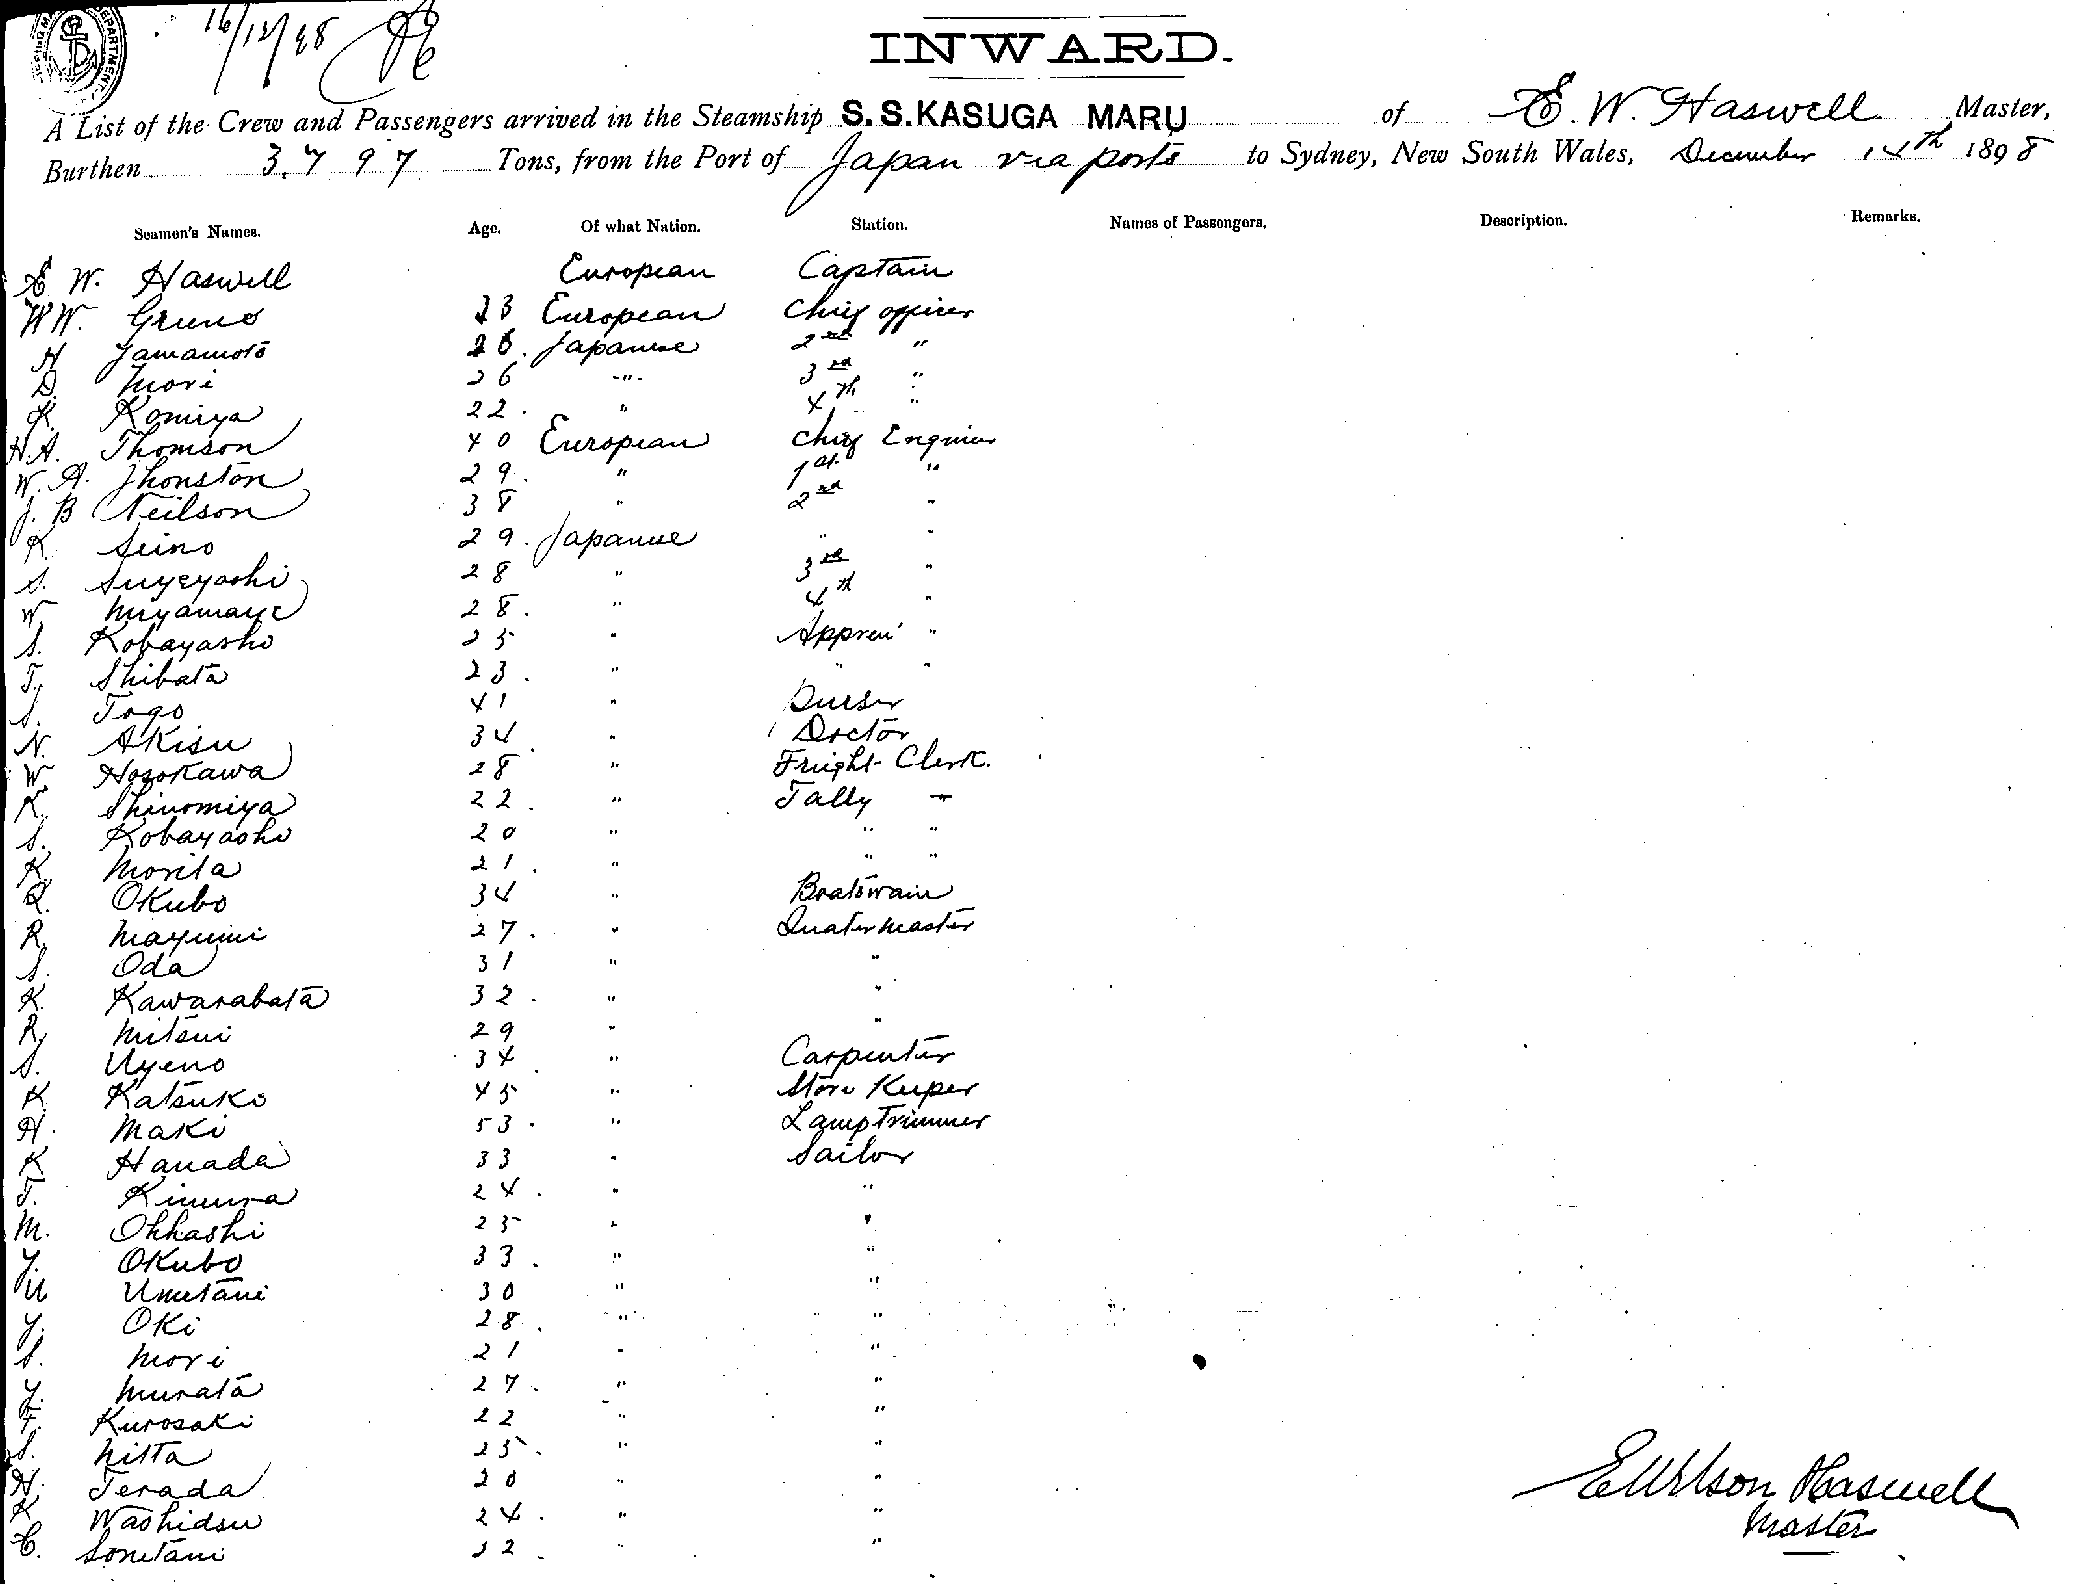 16/12/98
INWARD.
A List of the Crew and Passengers arrived in the Steamship S.S. KASUGA MARU of E. W. Haswell Master,
Burthen 3797 Tons, from the Port of Japan via ports to Sydney, New South Wales, December 14th 1898
Seamen's Names. Age. Of what Nation. Station. Names of Passengers. Description. Remarks.
E W. Haswell European Captain
W W. Greene 33 European Chief officer
H Yamamoto 26. Japanese 2nd "
D. Mori 26 " 3rd "
K. Komiya 22. " 4th "
H.A. Thomson 40 European Chief Engineer
W. A. Jhonston 29. " 1st. "
J. B Neilson 38 " 2nd "
K Seino 29. Japanese " "
S. Suyeyoshi 28 " 3rd "
W Miyamaye 28. " 4th "
S. Kobayashi 25 " Appren' "
T. Shibata 23. " " "
S. Togo 41 " Purser
N. Akisu 34. " Doctor
W. Hosokawa 28 " Freight Clerk.
K. Shinomiya 22. " Tally "
S. Kobayashi 20 " " "
K Morita 21. " " "
Okubo 34 " Boatswain
R. Mayumi 27. " Quatermaster
S. Oda 31 " "
K. Kawarabata 32. " "
R. Mitsui 29 " "
S. Uyeno 34. " Carpenter
K Katsuki 45 " Store Keeper
H. Maki 53. " Lamp Trimmer
K Hanada 33 " Sailor
T. Kimura 24. " "
M. Ohhashi 25 " "
Y. Okubo 33. " "
U Umetani 30 " "
Y. Oki 28. " "
S. Mori 21 " "
Y. Murata 27. " "
F. Kurosaki 22 " "
S. Nitta 25. " "
H. Terada 20 " "
K Washidsu 24. " "
C. Sometani 22. " "
E Wilson Haswell
Master